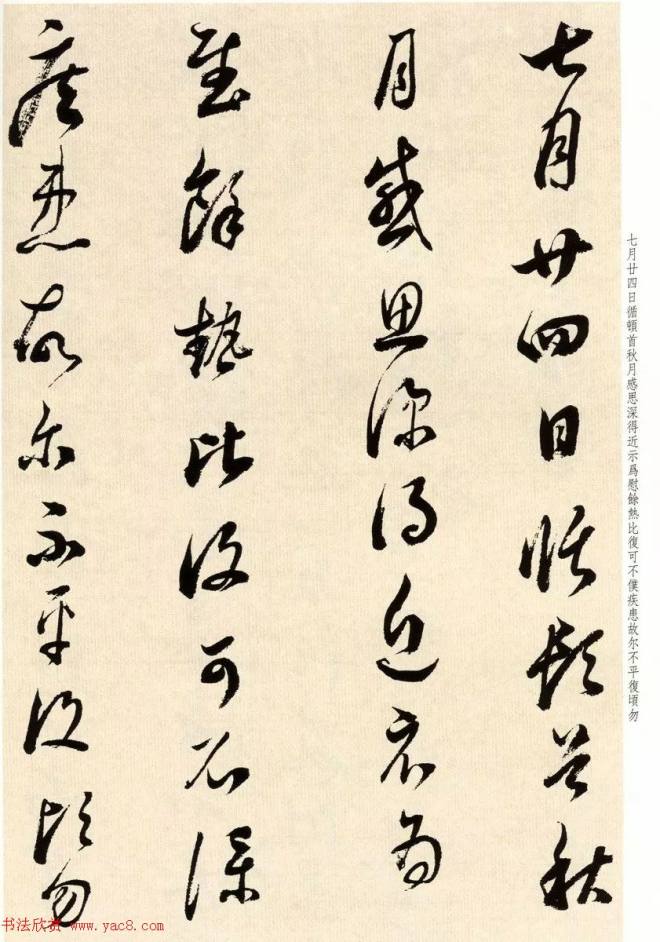 七月廿四日循頓首秋
月感思深得近示為
慰餘熱比復可不僕
疾患故尔不平復頃勿
七月廿四日循頓首秋月感思深得近示爲慰餘熱比復可不僕疾患故尔不平復頃勿
书法欣赏 www.yac8.com